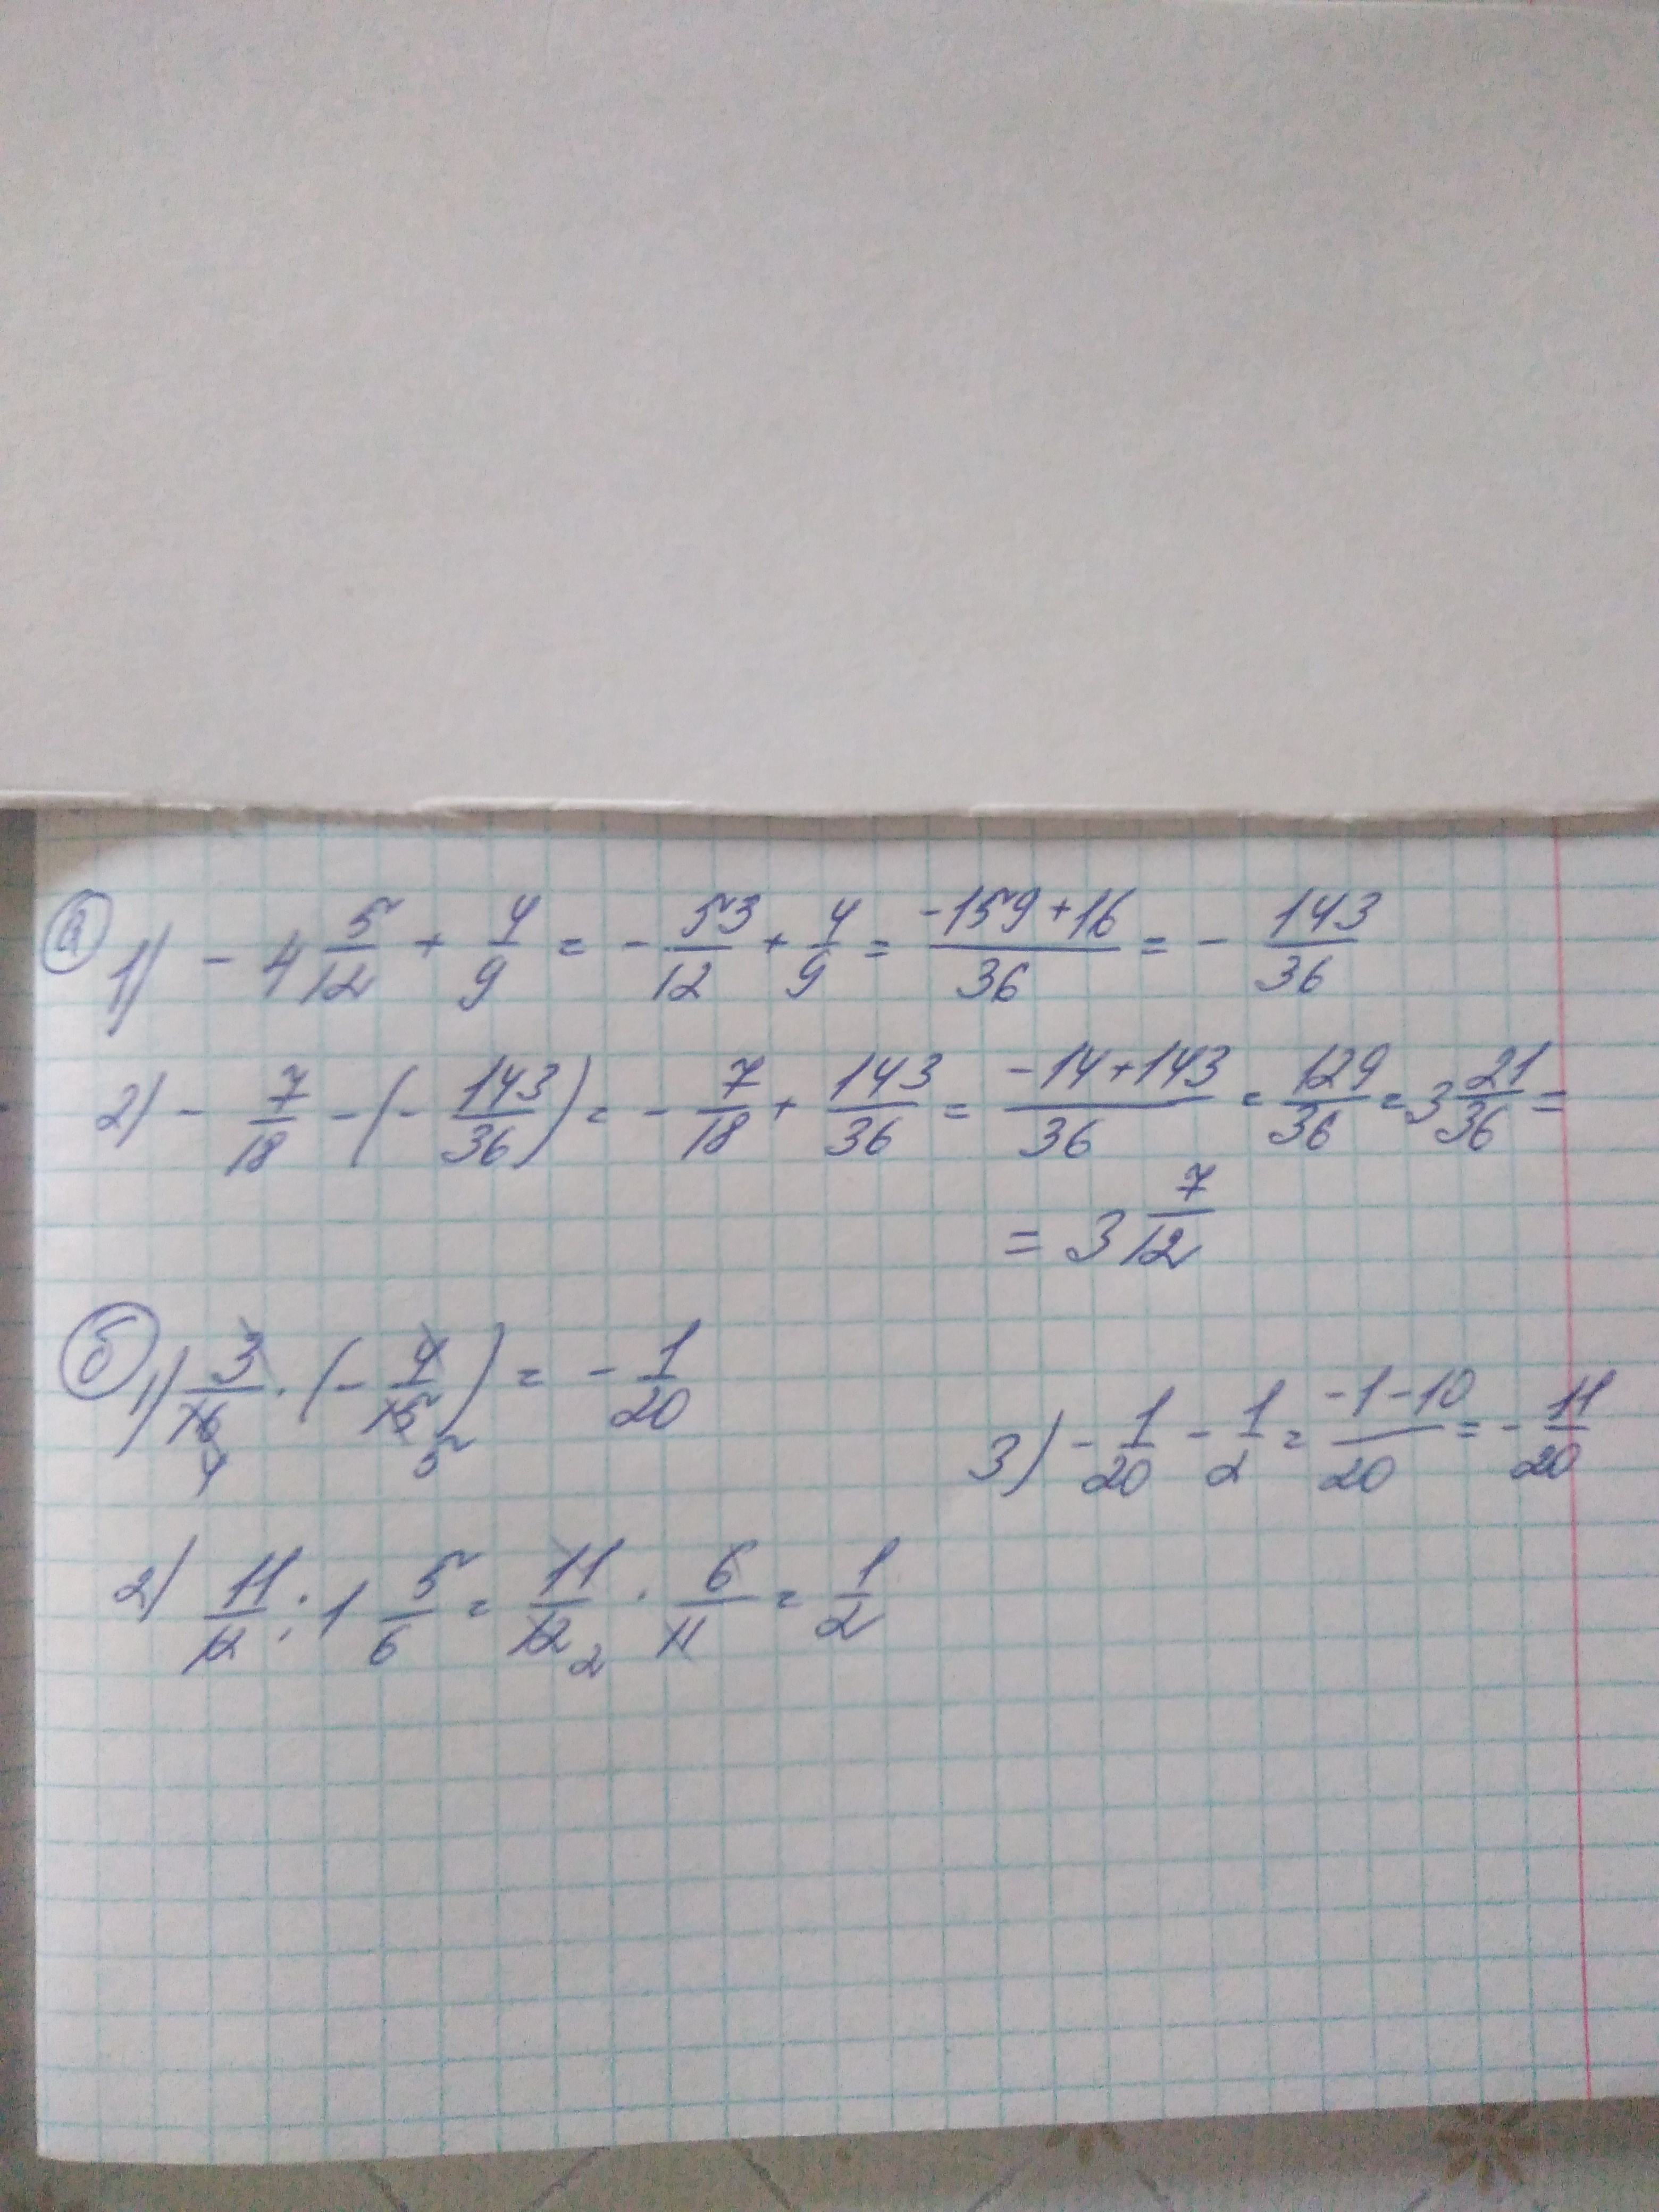 а) 1) - 4 5/12 + 4/9 = - 53/12 + 4/9 = (-159+16)/36 = - 143/36
2) - 7/18 - (- 143/36) = - 7/18 + 143/36 = (-14+143)/36 = 129/36 = 3 21/36 =
= 3 7/12
б) 1) 3/16 4 · (- 4/15 5) = - 1/20
3) - 1/20 - 1/2 = (-1-10)/20 = - 11/20
2) 11/12 : 1 5/6 = 11/12 2 · 6/11 = 1/2